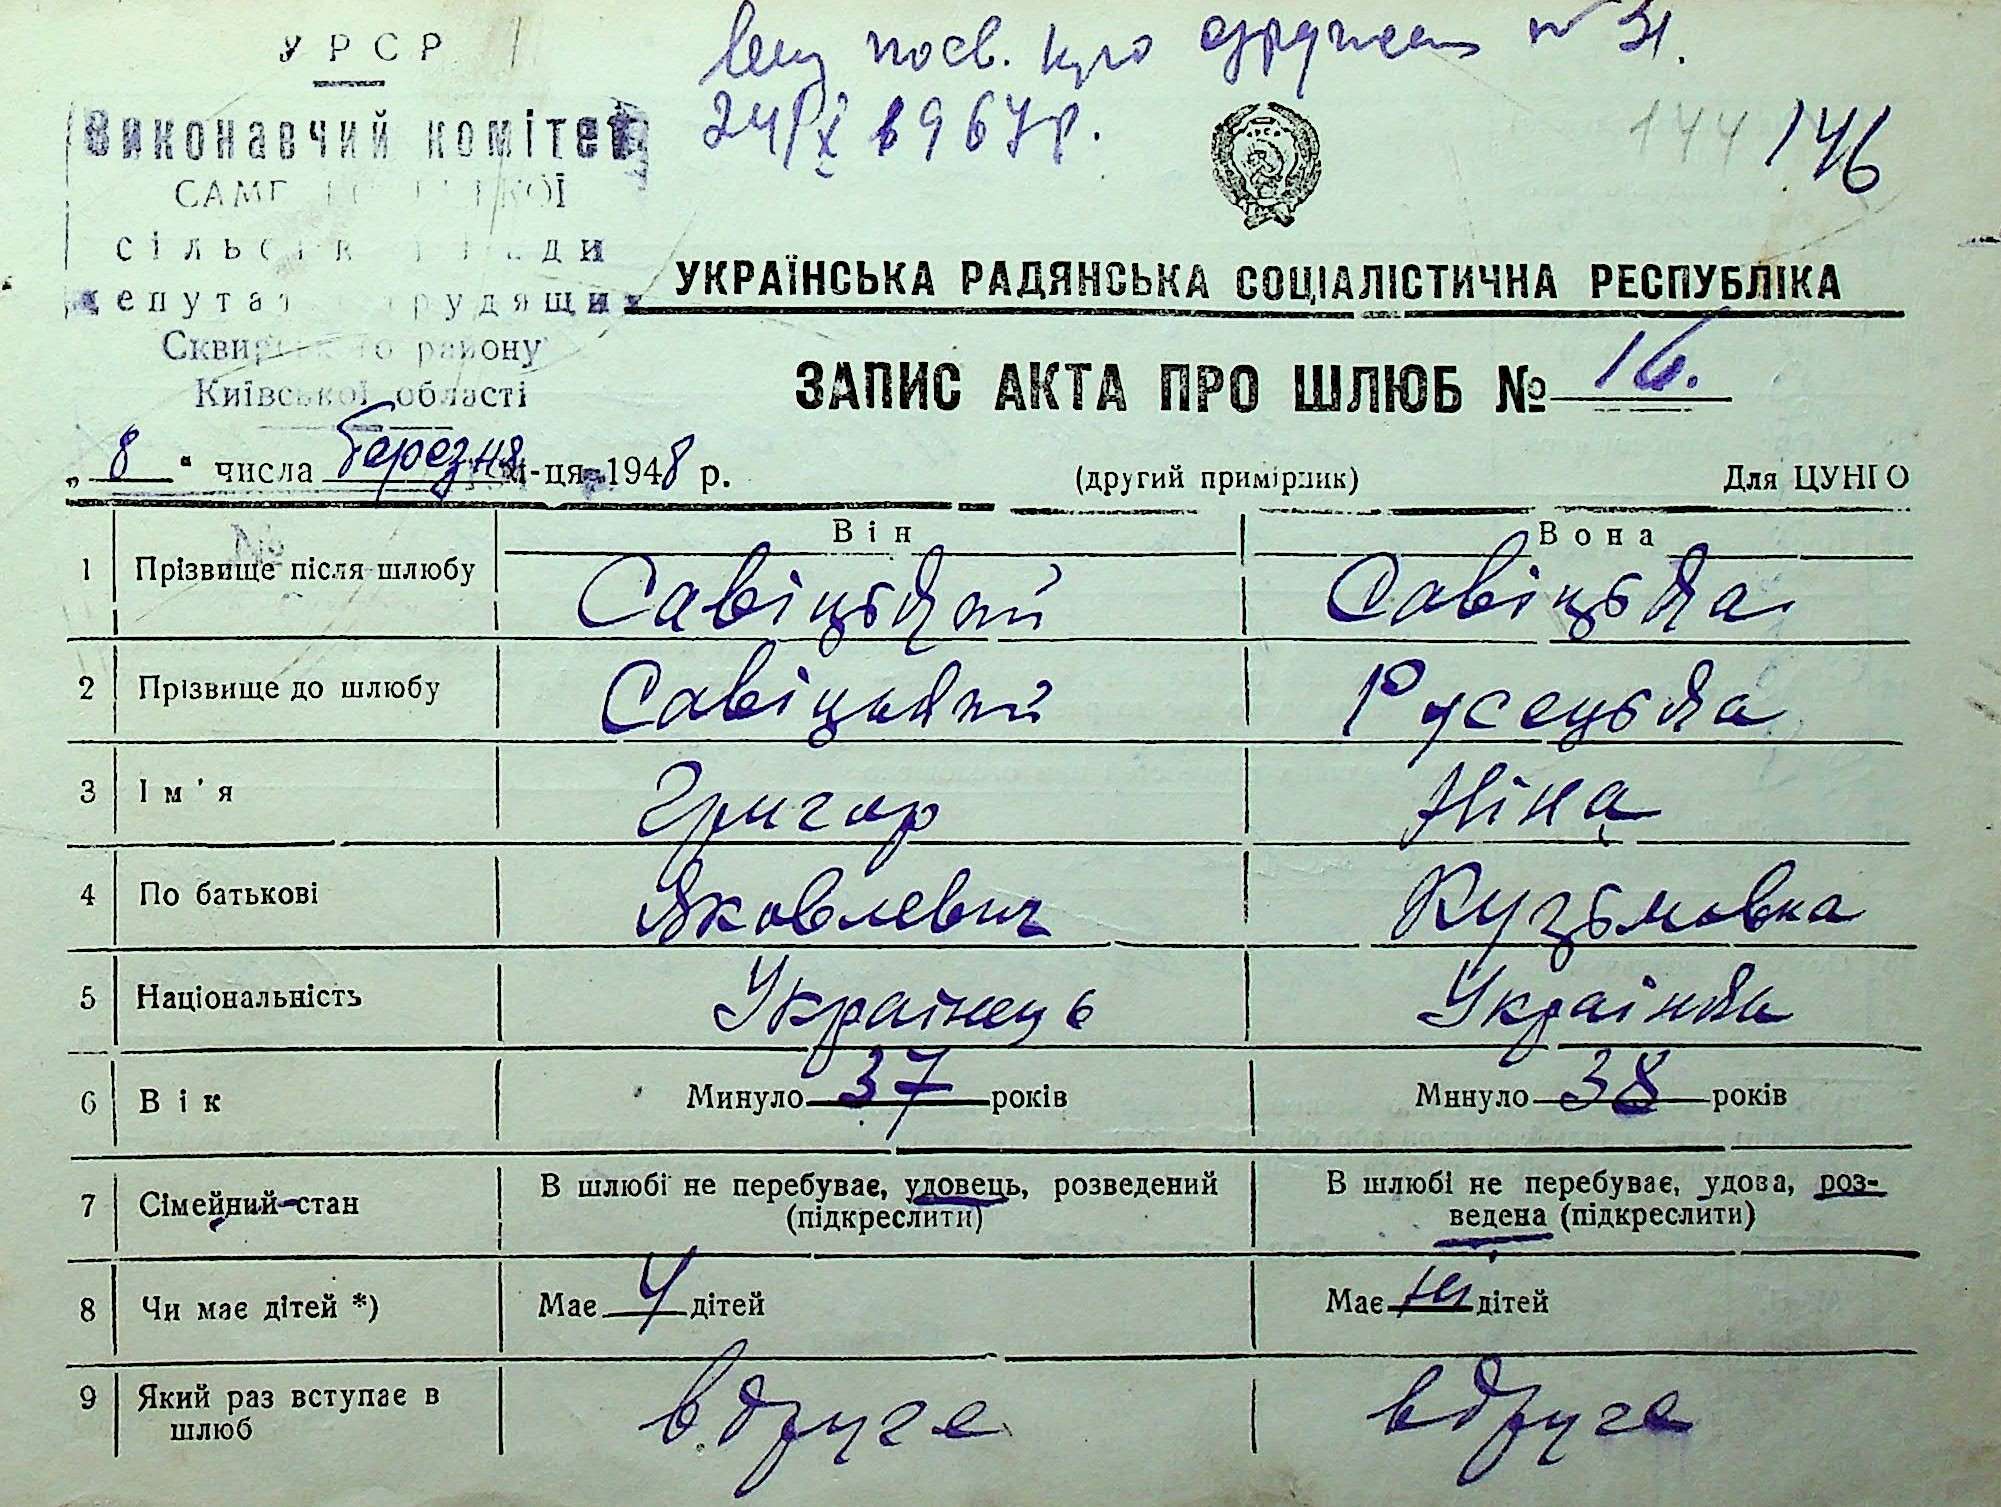 УРСР
Виконавчий комітет
сільської ради
депутатів трудящих
Сквирського району
Київської області
посв. про одружен № 31.
24/X 1967р.
144 146
УКРАЇНСЬКА РАДЯНСЬКА СОЦІАЛІСТИЧНА РЕСПУБЛІКА
ЗАПИС АКТА ПРО ШЛЮБ № 16.
„8“ числа березня м-ця 1948 р. (другий примірник) Для ЦУНГО
№
Він Вона
1 Прізвище після шлюбу Савіцький Савіцька
2 Прізвище до шлюбу Савіцький Русецька
3 Ім'я Григор Ніна
4 По батькові Яковлевич Кузьмовна
5 Національність Українець Українка
6 Вік Минуло 37 років Минуло 38 років
7 Сімейний стан В шлюбі не перебуває, удовець, розведений (підкреслити) В шлюбі не перебуває, удова, роз-
ведена (підкреслити)
8 Чи має дітей *) Має 4 дітей Має ні дітей
9 Який раз вступає в шлюб вдруге вдруге